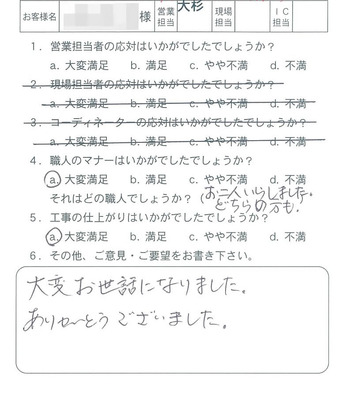 お客様名 様 営業担当 大杉 現場担当 IC担当
1．営業担当者の応対はいかがでしたでしょうか？
a. 大変満足 b. 満足 c. やや不満 d. 不満
2．現場担当者の応対はいかがでしたでしょうか？
a. 大変満足 b. 満足 c. やや不満 d. 不満
3．コーディネーターの応対はいかがでしたでしょうか？
a. 大変満足 b. 満足 c. やや不満 d. 不満
4．職人のマナーはいかがでしたでしょうか？
a. 大変満足 b. 満足 c. やや不満 d. 不満
それはどの職人でしょうか？（お二人いらしました。
どちらの方も。
5．工事の仕上がりはいかがでしたでしょうか？
a. 大変満足 b. 満足 c. やや不満 d. 不満
6．その他、ご意見・ご要望をお書き下さい。
大変お世話になりました。
ありがとうございました。